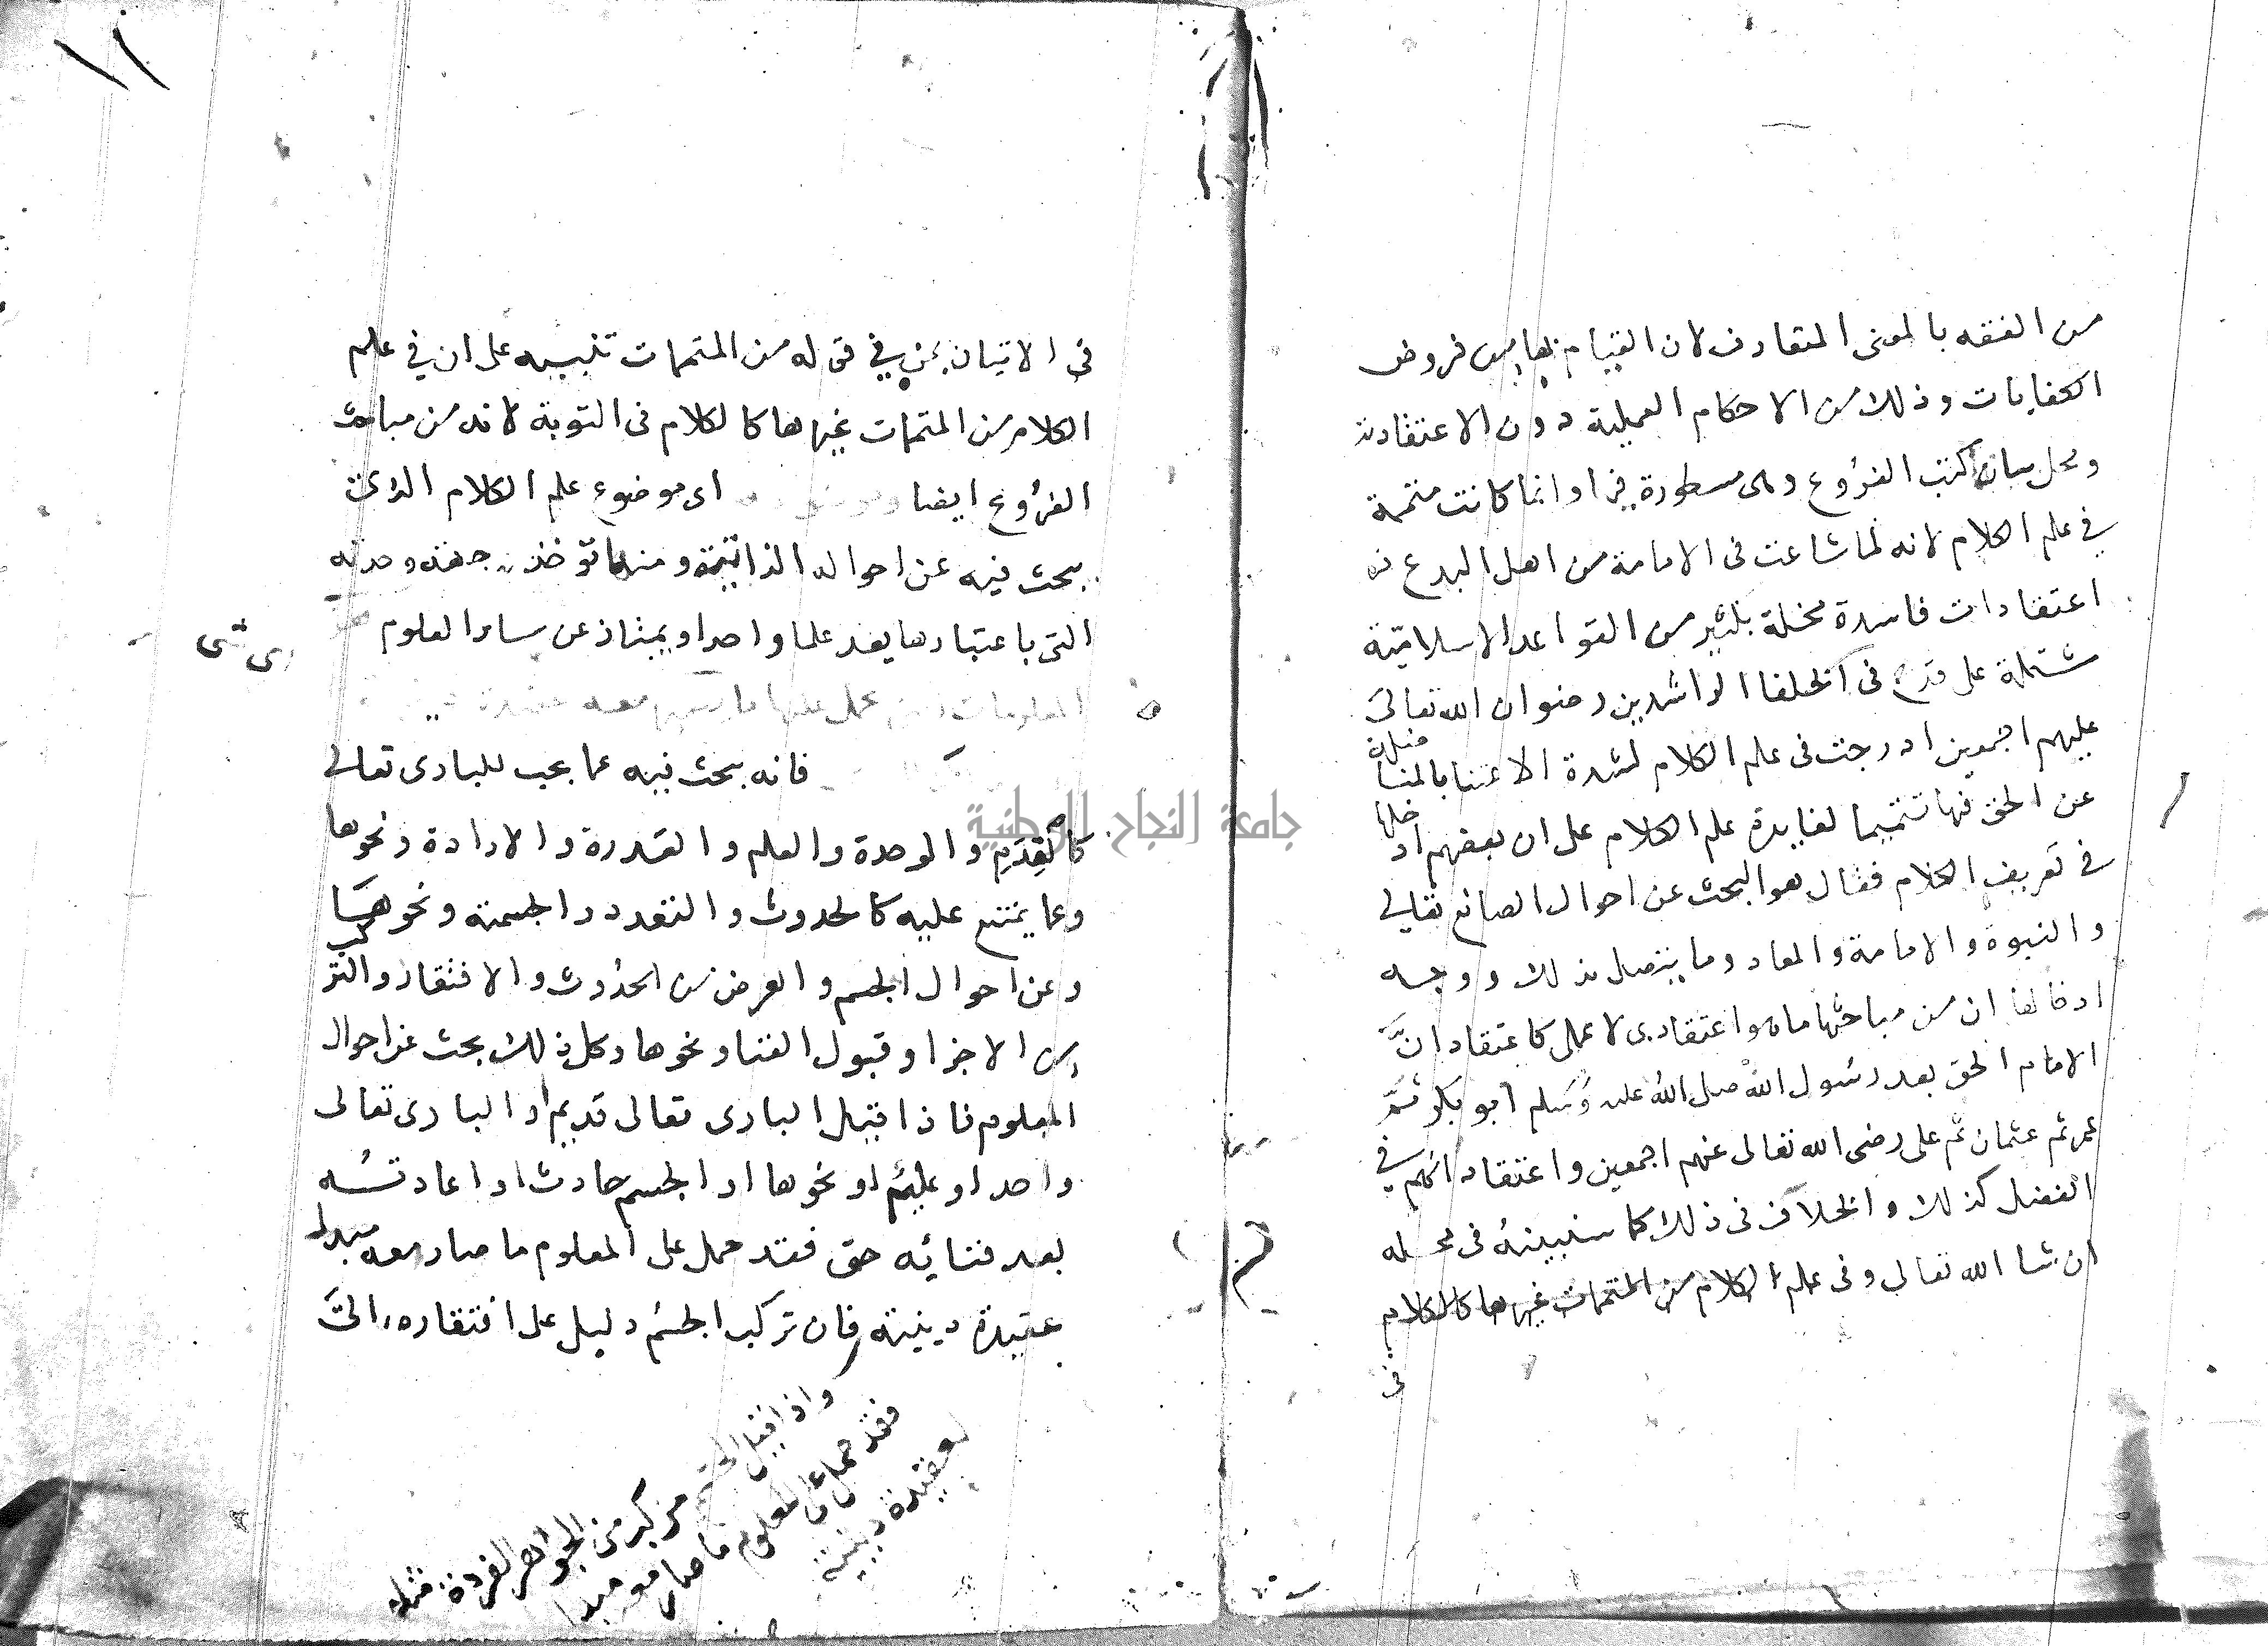 من الفقه بالمعنى المتعارف لان القيام بها من فروض
الكفايات وذلك من الاحكام العملية دون الاعتقادية
ومحل بيانها كتب الفروع وهى مسطورة فيها وانما كانت متممة
في علم الكلام لانه لما شاعت فى الامامة من اهل البدع
اعتقادات فاسدة مخلة بكثير من القواعد الاسلامية
مشتملة على قدح فى الخلفا الراشدين رضوان الله تعالى
عليهم اجمعين ادرجت فى علم الكلام لشدة الاعتنا بالمناضلة
عن الحق فيها تتميما لفايدة علم الكلام على ان بعضهم ادخلها
في تعريف الكلام فقال هو البحث عن احوال الصانع تعالى
والنبوة والامامة والمعاد وما يتصل بذلك ووجه
ادخالها ان من مباحثها ما هو اعتقادى لا عملى كاعتقاد انَّ
الامام الحق بعد رسول الله صلى الله عليه وسلم ابو بكر ثمَّ
عمر ثم عثمان ثم على رضى الله تعالى عنهم اجمعين واعتقاد انهم في
الفضل كذلك والخلاف فى ذلك كما سنبينه فى محله
ان شا الله تعالى وفى علم الكلام من المتممات غيرها كالكلام
فى
١١
فى الاتيان بمن في قوله من المتممات تنبيه على ان في علم
الكلام من المتممات غيرها كالكلام فى التوبة لانه من مباحث
الفروع ايضا اى موضوع علم الكلام الذى
يبحث فيه عن احواله الذاتية ومنها تؤخذ جهة وحدته
التى باعتبارها يعد علما واحدا ويمتاز عن ساير العلوم
المعلومات يحمل عليها ما يصير معه عقيدة
فانه يبحث فيه عما يجب للبارى تعالى
كالقِدَمِ والوحدة والعلم والقدرة والارادة ونحوها
وعما يمتنع عليه كالحدوث والتعدد والجسمية ونحوها
وعن احوال الجسم والعرض من الحدوث والافتقار والتركب
من الاجزا وقبول الفنا ونحوها وكل ذلك بحث عن احوال
المعلوم فاذا قيل البارى تعالى قديم او البارى تعالى
واحد او عليم او نحوها او الجسم حادث او اعادته
بعد فنائه حق فقد حمل على المعلوم ما صار معه مبدا
عقيدة دينية فان تركب الجسم دليل على افتقاره الى
واذا قيل الجسم مركب من الجواهر الفردة مثلا
فقد حمل على المعلوم ما صار معه مبدا
لعقيدة دينية
جامعة النجاح الوطنية